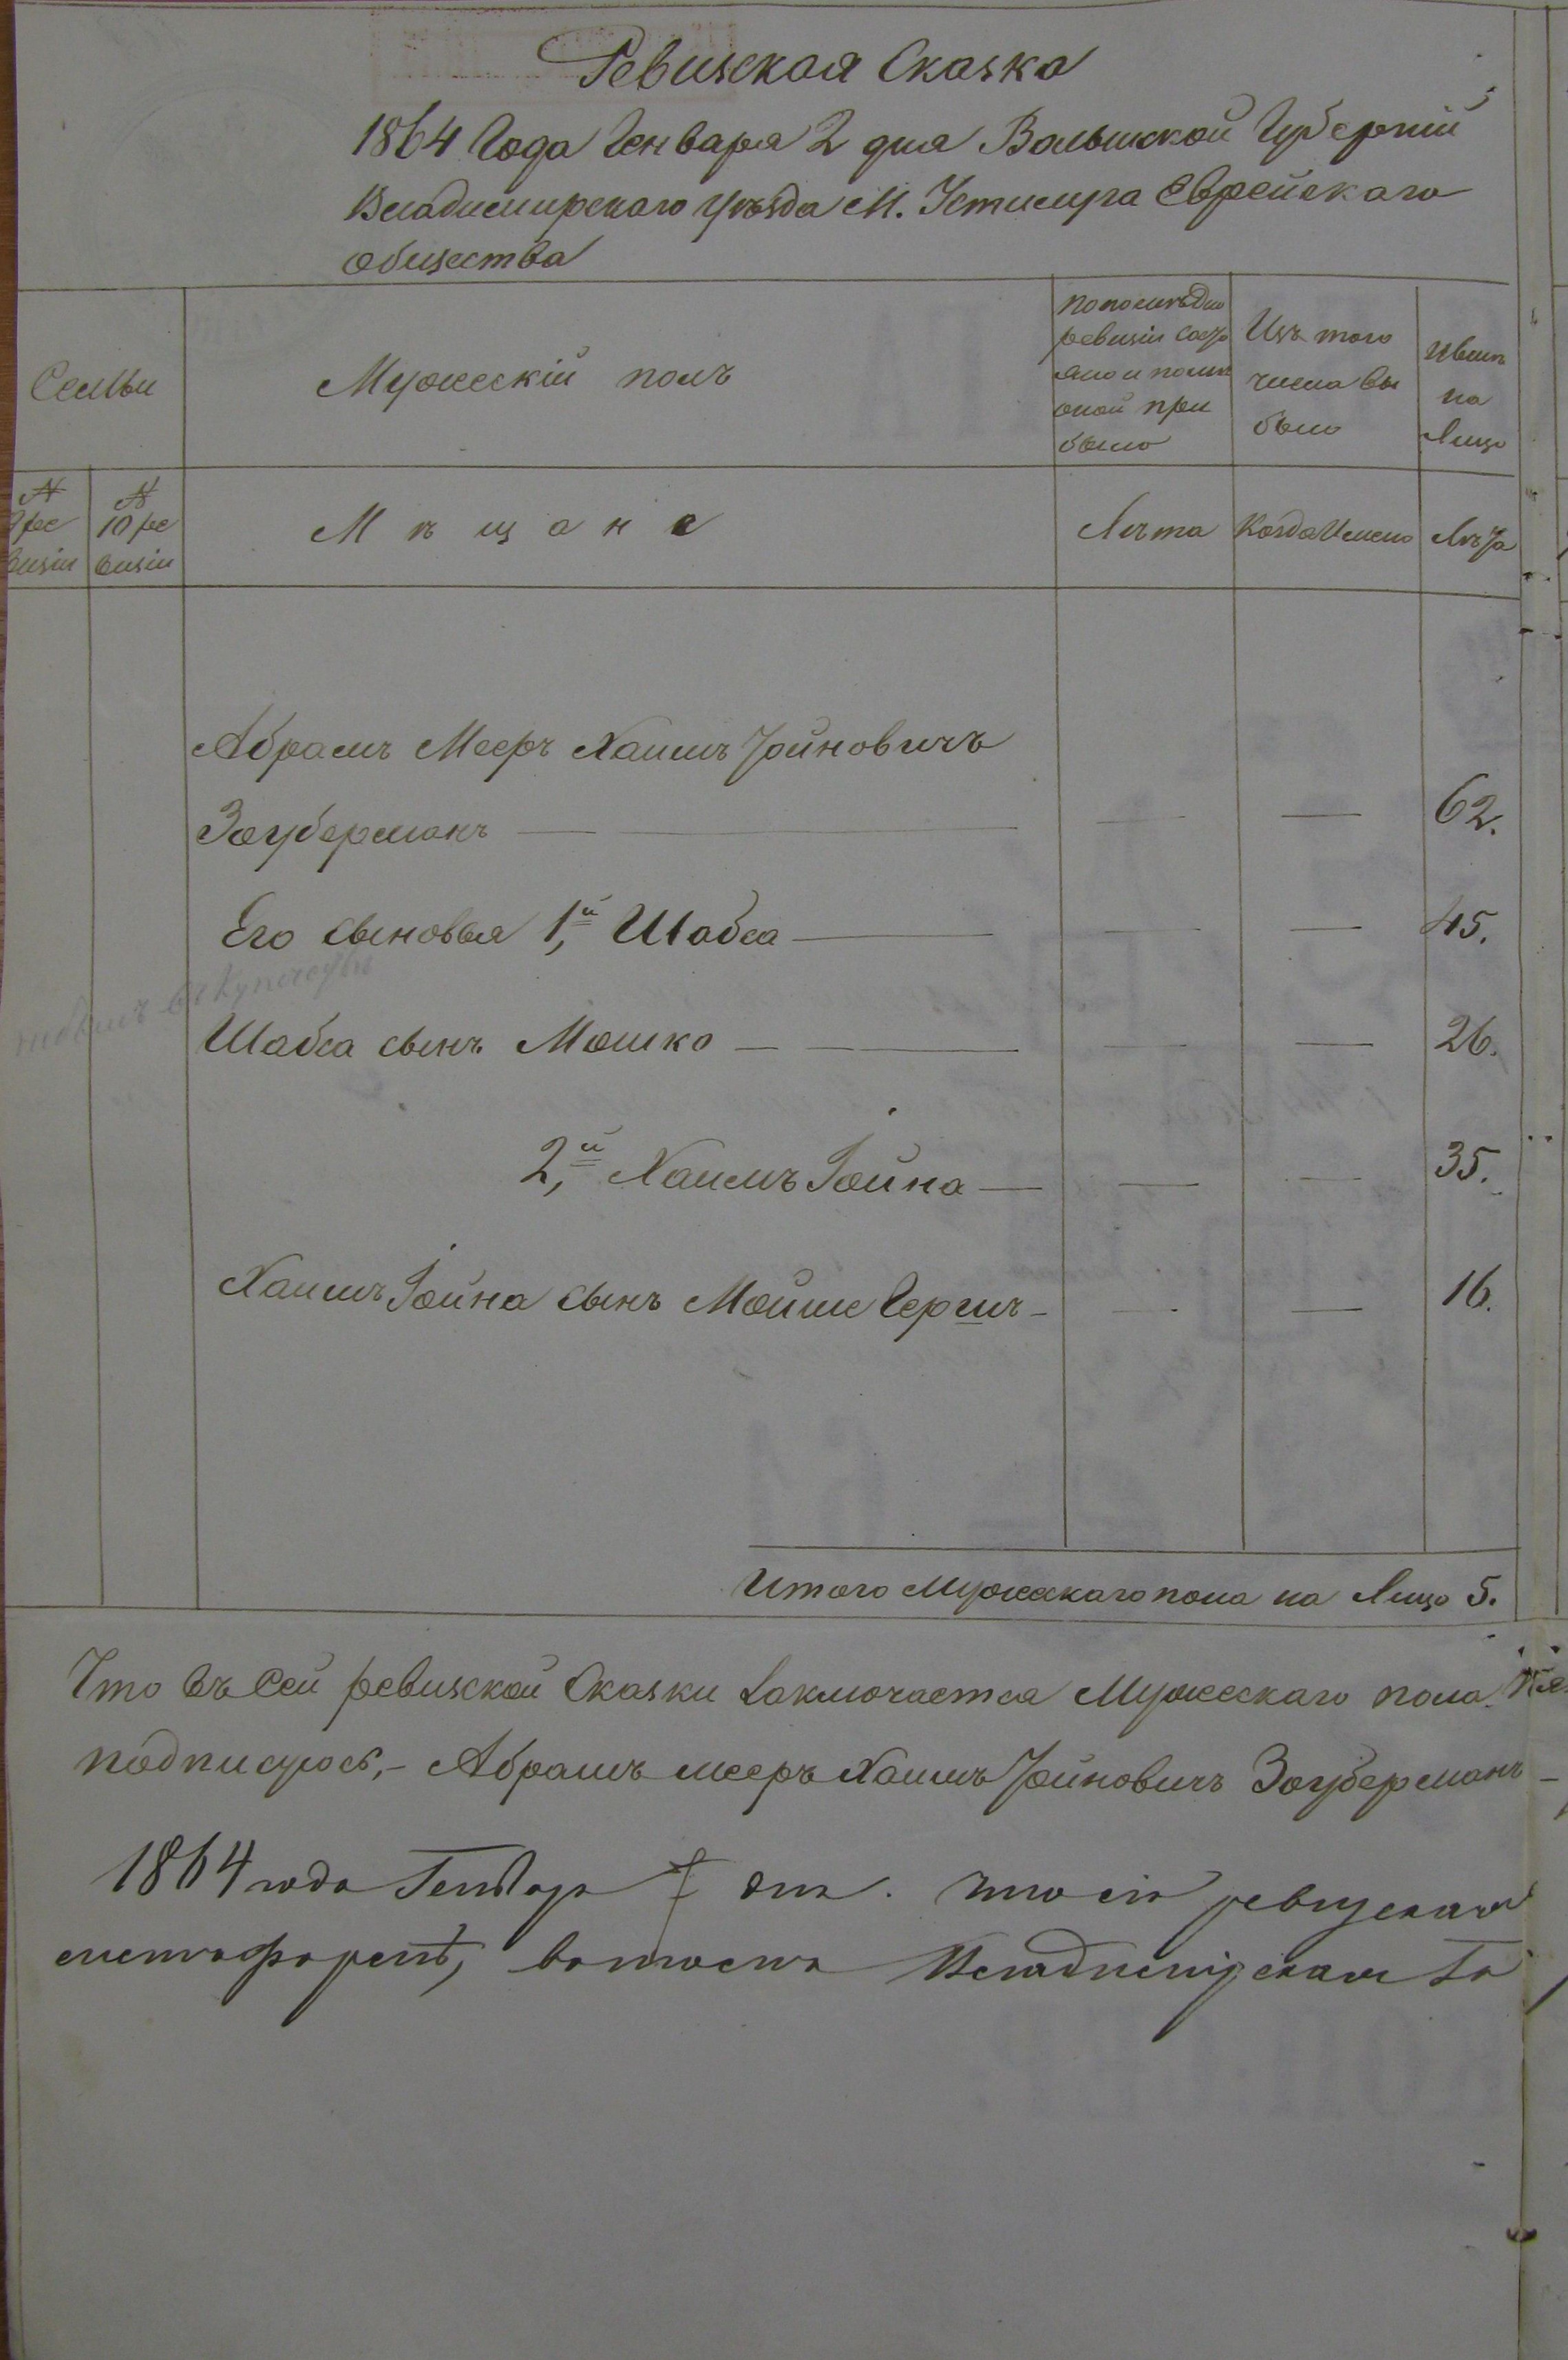 Ревизская Сказка
1864 Года Генваря 2 дня Волынской Губерніи
Владимирскаго уѣзда М. Устилуга Еврейскаго
общества
Семьи
Мужескій полъ
по послѣдн
ревизіи состо
яло и послѣ
оной при
было
Изъ того
числа вы
было
Нынѣ
на
Лицо
№
9 ре
визіи
№
10 ре
визіи
Мѣщане
Лѣта
Когда Именно
Лѣта
Абрамъ Мееръ Хаимъ Іойновичъ
Зауберманъ — — — — 62.
Его сыновья 1,й Шабса — — — 45.
въ купечество
Шабса сынъ Мошко — — — — 26.
2,й Хаимъ Іойна — — — 35.
Хаимъ Іойна сынъ Мойше Гершъ — — — 16.
Итого Мужескаго пола на Лицо 5.
Что въ сей ревизской Сказки Заключается Мужескаго пола
подписуюсь,- Абрамъ Мееръ Хаимъ Іойновичъ Зауберманъ -
1864 года Генвара дня. что сія ревизская
Владимірская Го